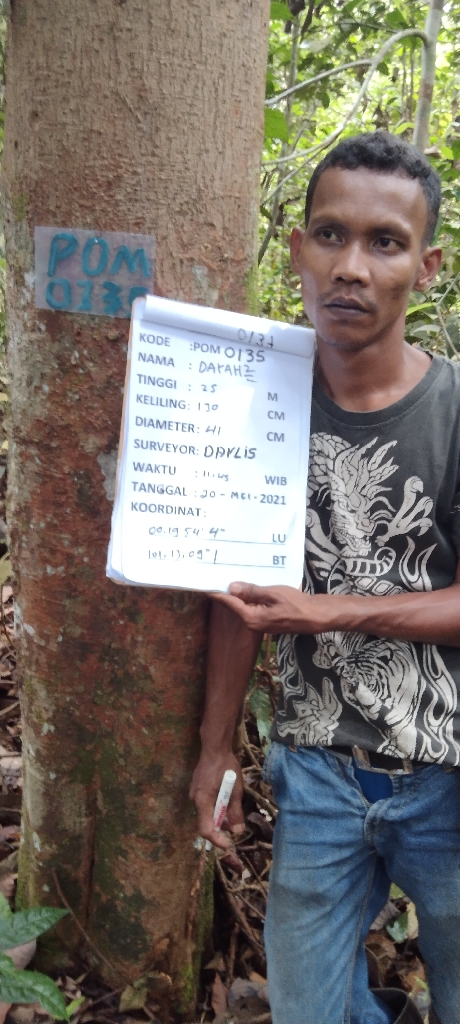 POM
0135
0137
KODE :POM 0135
NAMA : DARAH2
TINGGI : 25 M
KELILING: 130 CM
DIAMETER: 41 CM
SURVEYOR: DARLIS
WAKTU : 11.45 WIB
TANGGAL : 20 - MEI - 2021
KOORDINAT:
00.19 54' 4" LU
101.13.09"1 BT